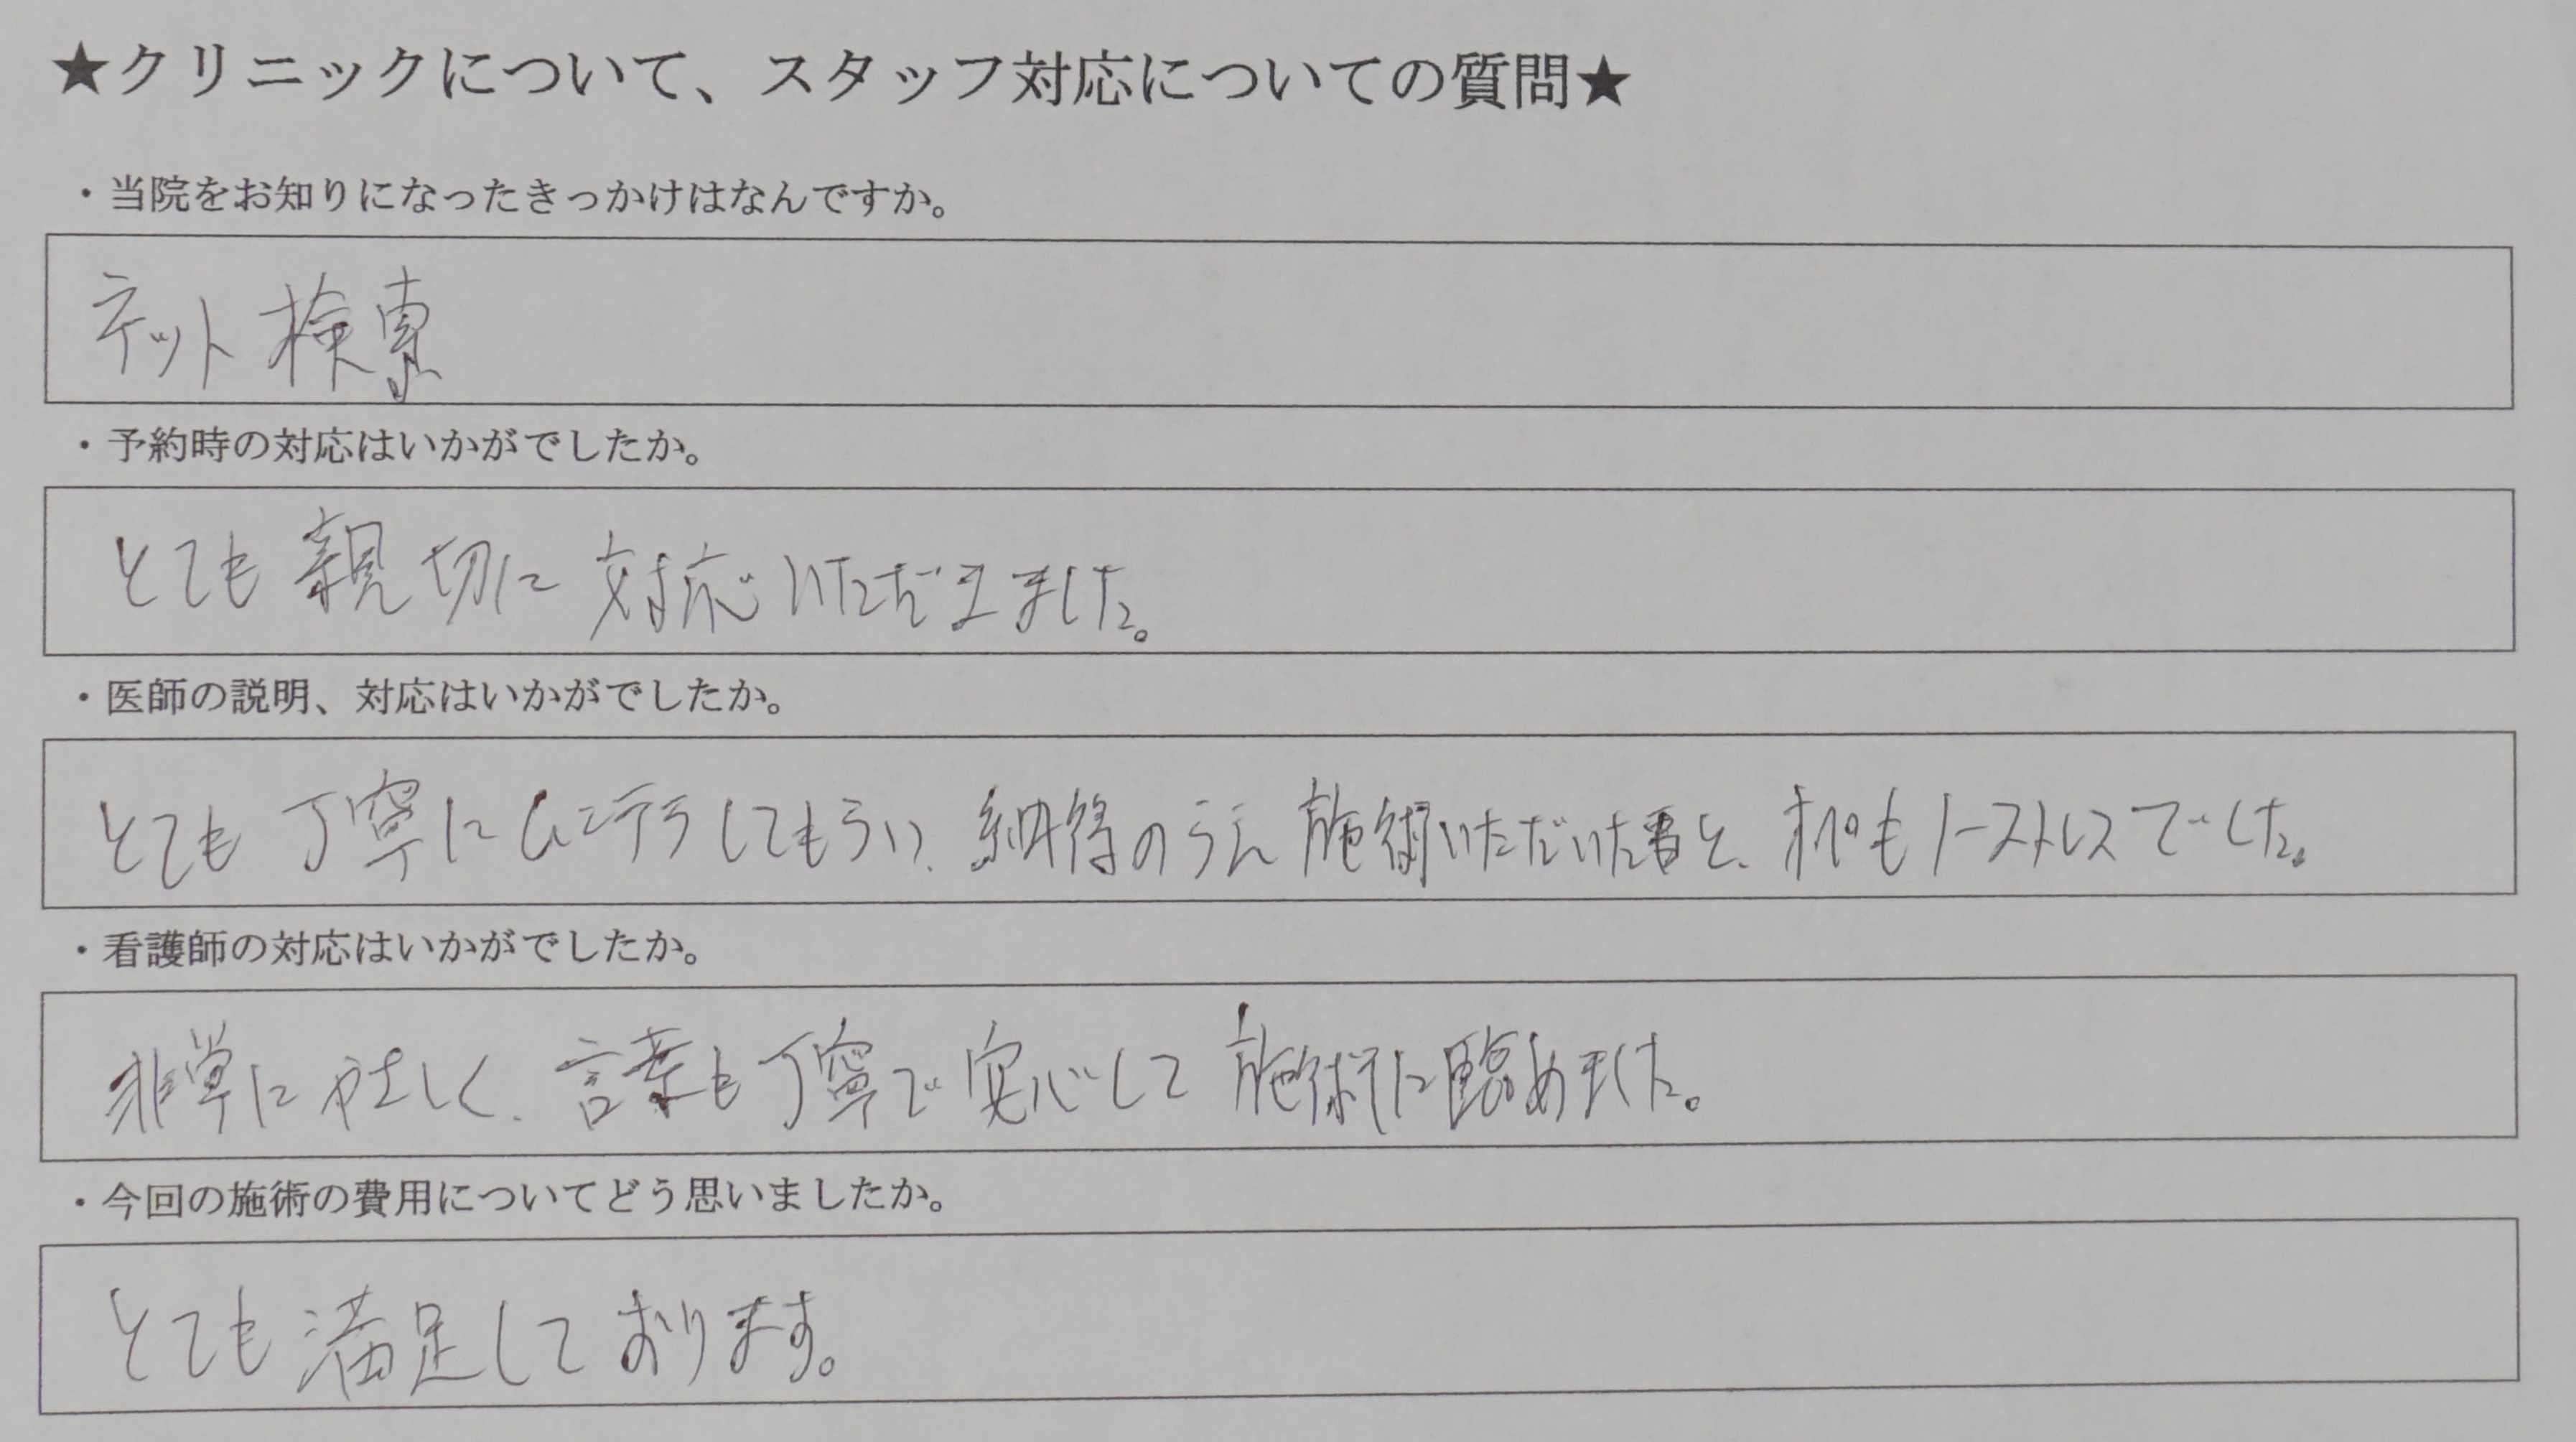 ★クリニックについて、スタッフ対応についての質問★
・当院をお知りになったきっかけはなんですか。
ネット検索
・予約時の対応はいかがでしたか。
とても親切に対応いただきました。
・医師の説明、対応はいかがでしたか。
とても丁寧にしてもらい、納得のうえ施術いただいた事と、オペもノーストレスでした。
・看護師の対応はいかがでしたか。
非常に優しく、言葉も丁寧で安心して施術に臨めました。
・今回の施術の費用についてどう思いましたか。
とても満足しております。